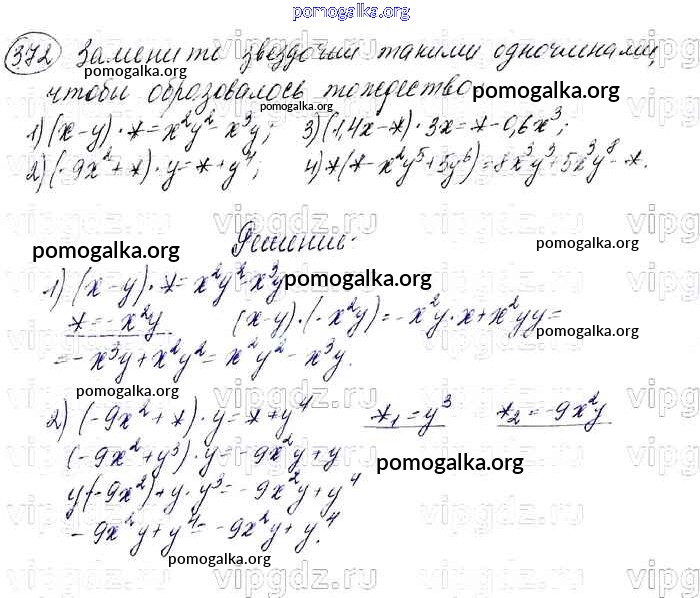 pomogalka.org
372 Замените звездочки такими одночленами,
pomogalka.org pomogalka.org
чтобы образовалось тождество
pomogalka.org pomogalka.org
1) (x-y)·*=x²y²-x³y; 3) (1,4x-*)·3x=*-0,6x³;
2) (-9x²+*)·y=*+y⁴; 4) *(*-x²y⁵+5y⁶)=8x³y³+5x³y⁸-*.
vipgdz.ru vipgdz.ru vipgdz.ru vipgdz
Решение:
pomogalka.org pomogalka.org
1) (x-y)·*=x²y²-x³y
pomogalka.org
*=-x²y (x-y)·(-x²y)=-x²y·x+x²yy=
pomogalka.org
=-x³y+x²y²=x²y²-x³y.
pomogalka.org
2) (-9x²+*)·y=*+y⁴ *₁=y³ *₂=-9x²y
(-9x²+y³)·y=-9x²y+y
pomogalka.org
y(-9x²)+y·y³=-9x²y+y⁴
-9x²y+y⁴=-9x²y+y⁴.
pomogalka.org
vipgdz.ru vipgdz.ru vipgdz.ru vipgdz